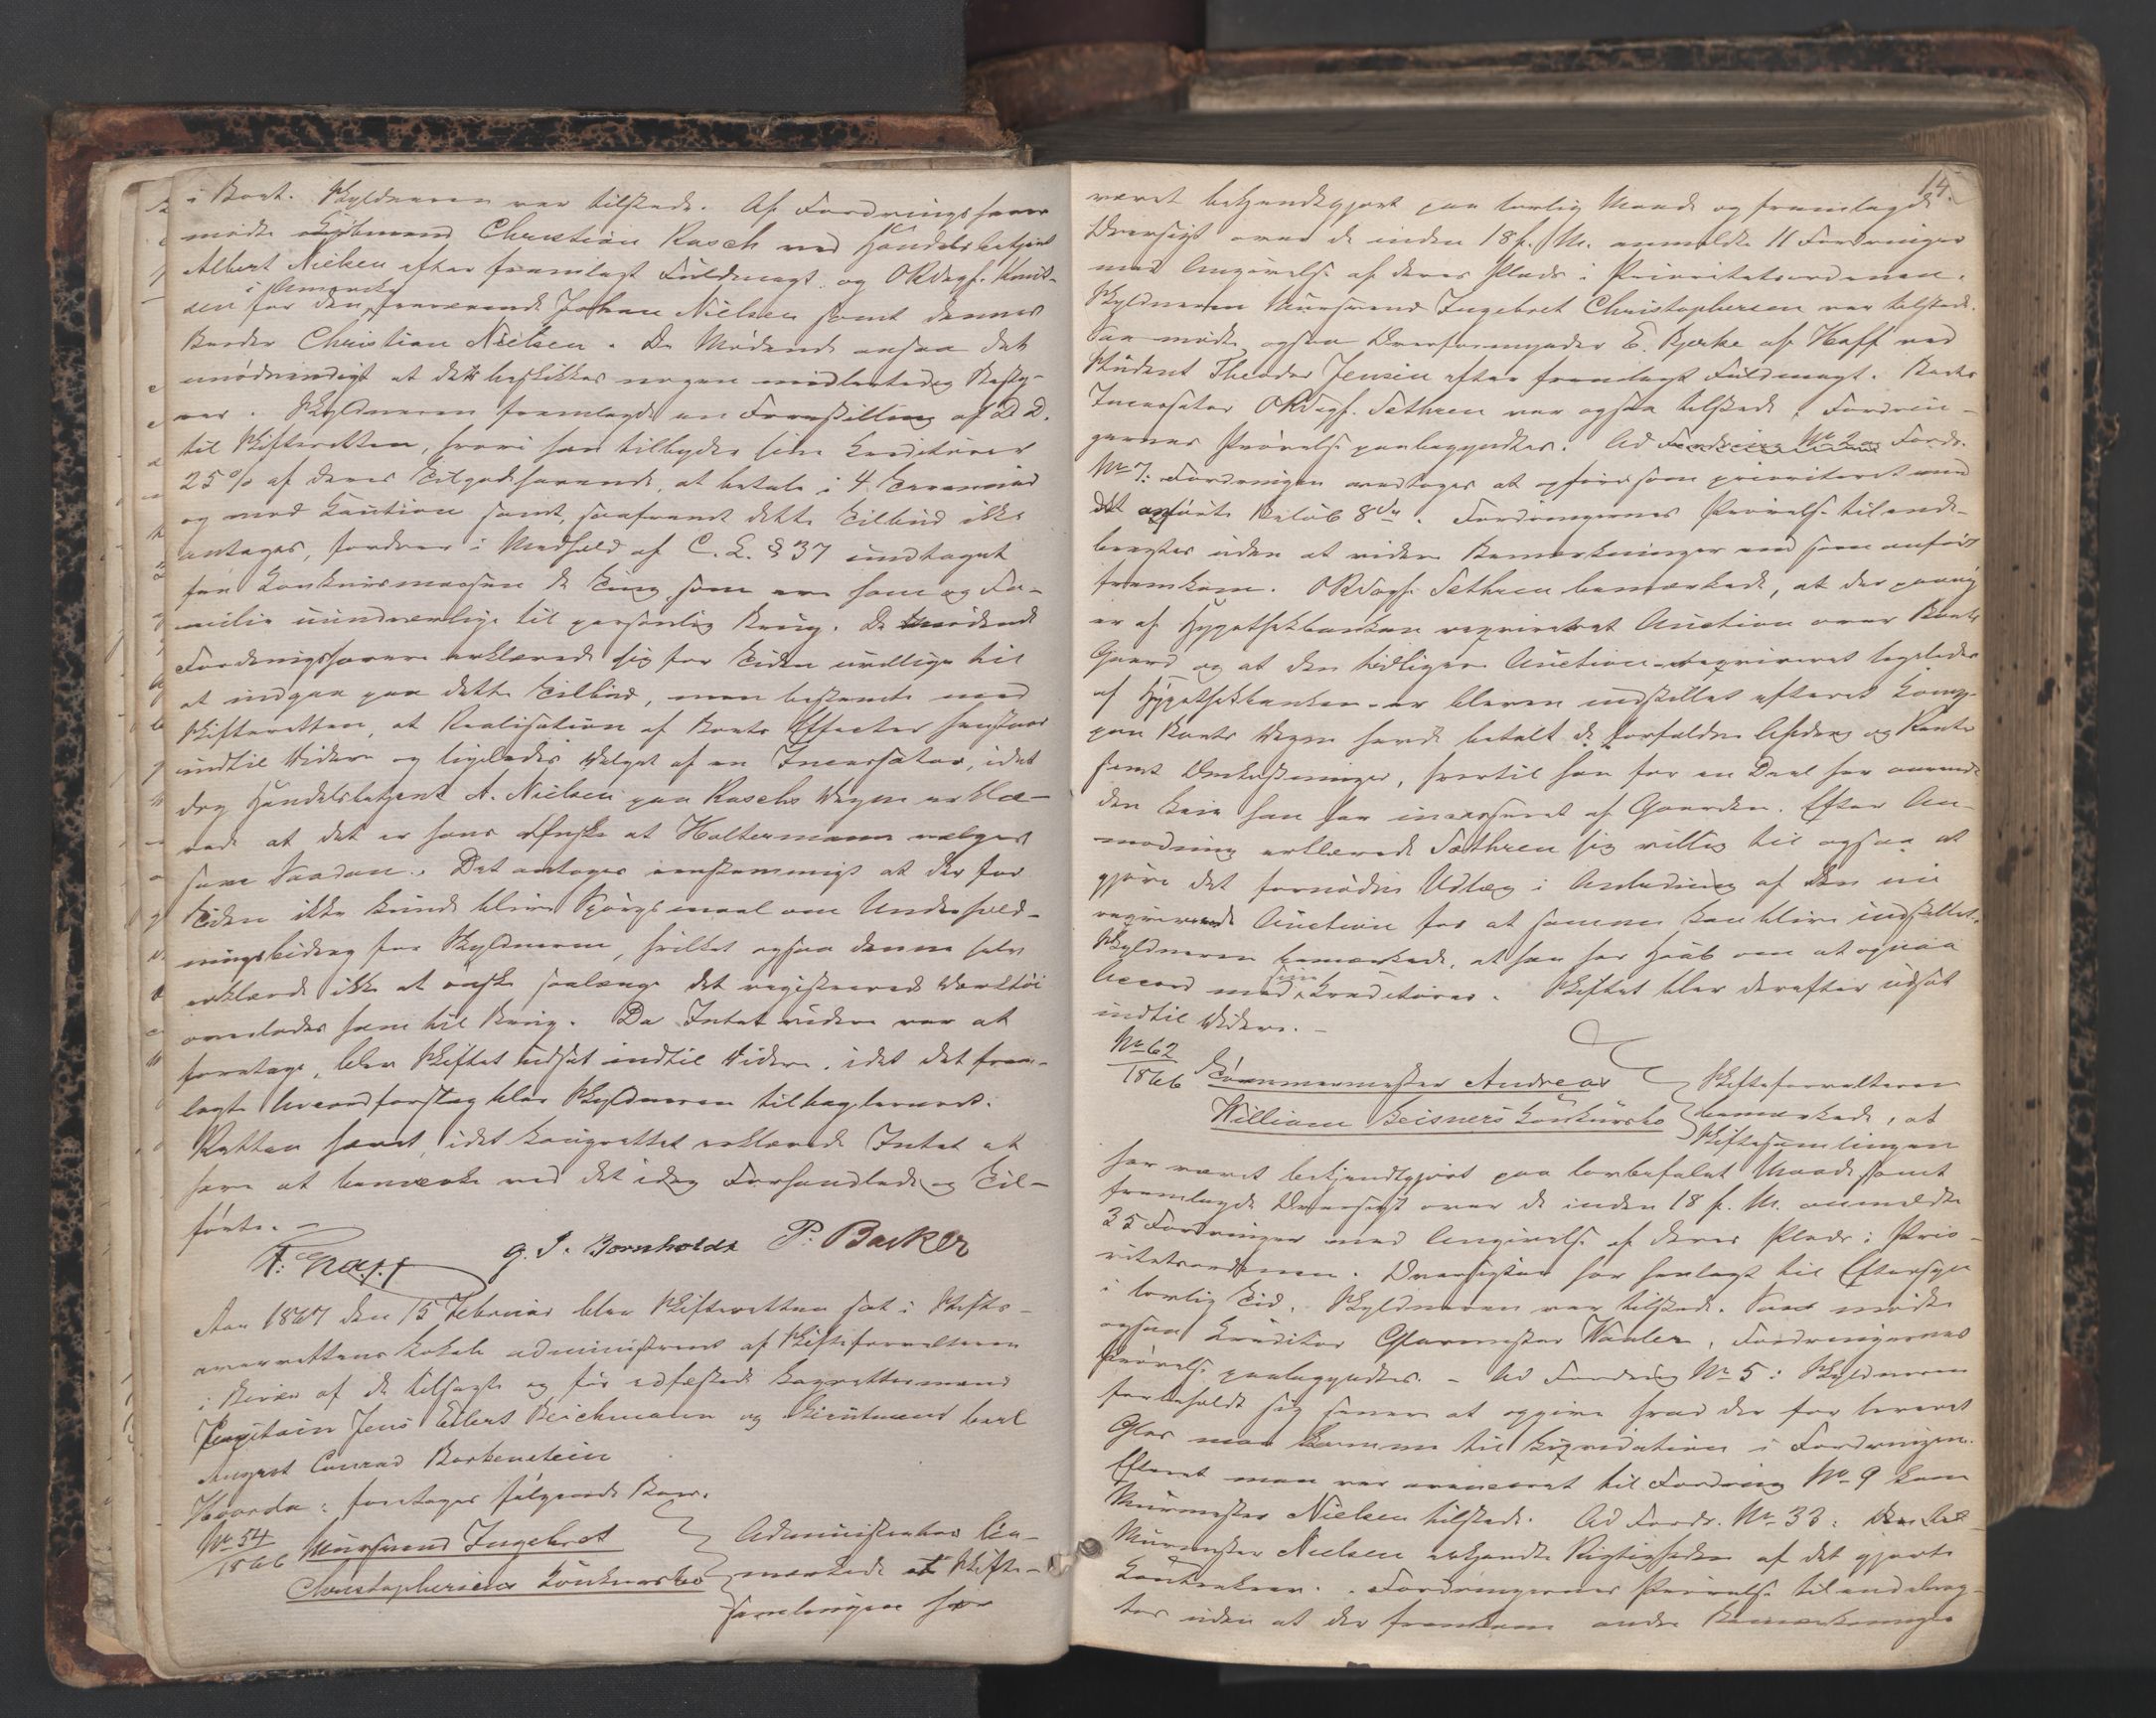 i Boet. Skyldneren var tilstede. Af Fordringshavere
mødte Kjøbmand Christian Rasch ved Handelsbetjent
Albert Nielsen efter fremlagt Fuldmagt og ORSagf. Knud-
sen for den i Amerika fraværende Johan Nielsen samt dennes
Broder Christian Nielsen. De Mødende ansaa det
unødvendigt at der beskikkes nogen midlertidig Besty-
rer. Skyldneren fremlagde en Forestilling af D. D.
til Skifteretten, hvori han tilbyder sine Kreditorer
25% af deres Tilgodehavende, at betale i 4 Terminer
og mod Kaution samt, saafremt dette Tilbud ikke
antages, fordrer i Medhold af C. L. § 37 undtaget
fra Konkursmassen de Ting som ere ham og Fa-
milie uundværlige til personlig Brug. De mødende
Fordringshavere erklærede sig for Tiden uvillige til
at indgaa paa dette Tilbud, men bestemte med
Skifteretten, at Realisation af Boets Effecter henstaar
indtil Videre og ligeledes Valget af en Incassator, idet
dog Handelsbetjent A. Nielsen paa Raschs Vegne erklæ-
rede at det er hans Ønske at Holtermann vælges
som Saadan. Det antoges eenstemmigt at der for
Tiden ikke kunde blive Spørgsmaal om Underhold-
ningsbidrag for Skyldneren, hvilket ogsaa denne selv
erklærede ikke at ønske saalænge det registrerede Værktøi
overlades ham til Brug. Da Intet videre var at
foretage, blev Skiftet udsat indtil Videre, idet det frem-
lagte Accordforslag blev Skyldneren tilbageleveret.
Retten hævet, idet Laugrettet erklærede Intet at
have at bemærke ved det idag Forhandlede og Til-
førte. —
G. J. Bornholdt P. Barker
Aar 1867 den 15 Februar blev Skifteretten sat i Stifts-
overrettens Lokale administreret af Skifteforvalteren
i Overvær af de tilsagte og før edfæstede Laugrettesmænd
Capitain Jens Eilert Beichmann og Lieutenant Carl
August Conrad Borkenstein
Hvorda: foretoges følgende Boer.
No 54
1866 Muursvend Ingebret
Christophersens Konkursbo
Administrator be-
mærkede at Skifte-
samlingen har
14.
været bekjendtgjort paa lovlig Maade og fremlagde
Oversigt over de inden 18 f. M. anmeldte 11 Fordringer
med Angivelse af deres Plads i Prioritetsordenen.
Skyldneren Muursvend Ingebret Christophersen var tilstede.
Saa mødte ogsaa Overformynder E. Bjerke af Hoff ved
Student Theodor Jensen efter fremlagt Fuldmagt. Boets
Incassator ORSagf. Sethren var ogsaa tilstede. Fordrin-
gernes Prøvelse paabegyndtes. Ad Fordring No 2 og Fordr.
No 7: Fordringen vedtoges at opføres som prioriteret med
det anførte Beløb 8 Sp. Fordringernes Prøvelse tilende-
bragtes uden at videre Bemærkninger end som anført
fremkom. ORSagf. Sethren bemærkede, at der paany
er af Hypothekbanken requireret Auction over Boets
Gaard og at den tidligere Auction requireret ligeledes
af Hypothekbanken er bleven indstillet efterat Komp.
paa Boets Vegne havde betalt de forfaldne Afdrag og Rente
samt Omkostninger, hvortil han for en Deel har anvendt
den Leie han har incasseret af Gaarden. Efter An-
modning erklærede Sæthren sig villig til ogsaa at
gjøre det fornødne Udlæg i Anledning af den nu
requirerede Auction for at samme kan blive indstillet.
Skyldneren bemærkede, at han har Haab om at opnaa
Accord med sine Kreditorer. Skiftet blev derefter udsat
indtil Videre. —
No 62
1866 Tømmermester Andreas
William Geisners Konkursbo
Skifteforvalteren
bemærkede, at
Skiftesamlingen
har været bekjendtgjort paa lovbefalet Maade samt
fremlagde Oversigt over de inden 18 f. M. anmeldte
35 Fordringer med Angivelse af deres Plads i Prio-
ritetsordenen. Oversigten har henlagt til Eftersyn
i lovlig Tid. Skyldneren var tilstede. Saa mødte
ogsaa Kreditor Glarmester Wahler. Fordringernes
Prøvelse paabegyndtes. — Ad Fordring No 5: Skyldneren
forbeholdt sig senere at opgive hvad der for leveret
Glas maa komme til Liqvidation i Fordringen.
Efterat man var avanceret til Fordring No 9 kom
Muurmester Nielsen tilstede. Ad Fordr. No 33:
Muurmester Nielsen erkjendte Rigtigheden af det gjorte
Contrakrav. Fordringernes Prøvelse tilendebrag-
tes uden at der fremkom andre Bemærkninger